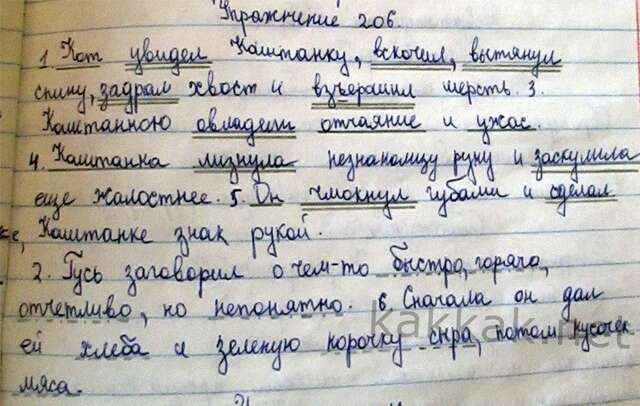 Упражнение 206.
1. Кот увидел Каштанку, вскочил, вытянул
спину, задрал хвост и взъерошил шерсть. 3.
Каштанкою овладели отчаяние и ужас.
4. Каштанка лизнула незнакомцу руку и заскулила
еще жалостнее. 5. Он чмокнул губами и сделал
Каштанке знак рукой.
2. Гусь заговорил о чем-то быстро, горячо,
отчетливо, но непонятно. 6. Сначала он дал
ей хлеба и зеленую корочку сыра, потом кусочек
мяса.
kakkak.net